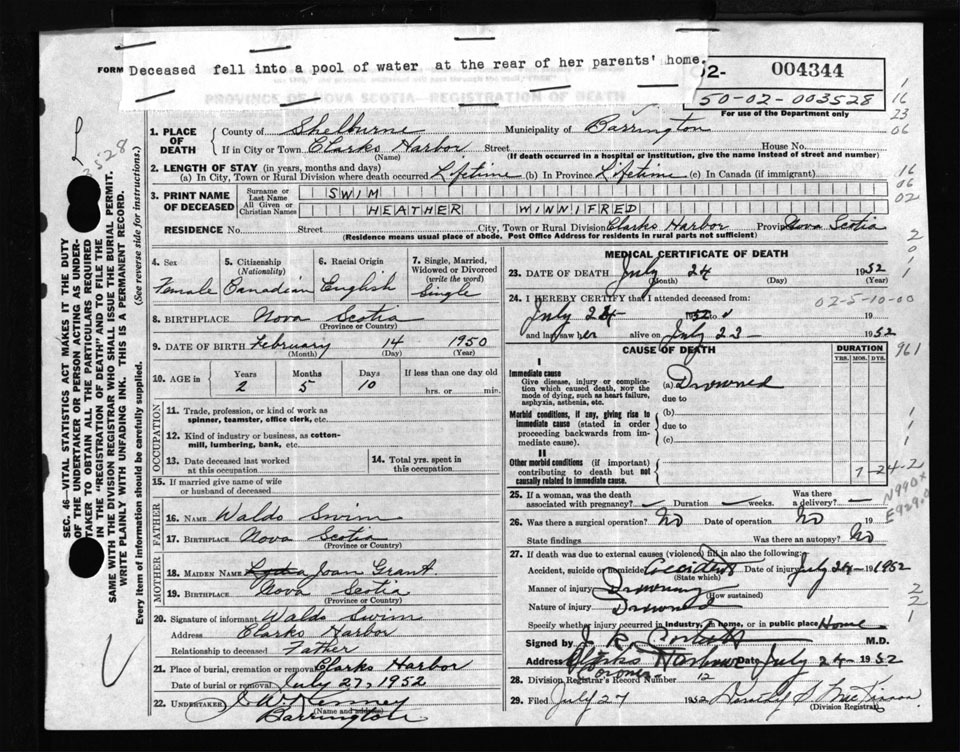 FORM Deceased fell into a pool of water at the rear of her parents' home.
02- 004344
50-02-003528
For use of the Department only
PROVINCE OF NOVA SCOTIA—REGISTRATION OF DEATH
1. PLACE OF DEATH County of Shelburne Municipality of Barrington
If in City or Town Clarks Harbor Street House No.
(Name) (If death occurred in a hospital or institution, give the name instead of street and number)
2. LENGTH OF STAY (in years, months and days)
(a) In City, Town or Rural Division where death occurred Lifetime (b) In Province Lifetime (c) In Canada (if immigrant)
3. PRINT NAME OF DECEASED Surname or Last Name SWIM
All Given or Christian Names HEATHER WINNIFRED
RESIDENCE No. Street City, Town or Rural Division Clarks Harbor Province Nova Scotia
(Residence means usual place of abode. Post Office Address for residents in rural parts not sufficient)
4. Sex 5. Citizenship (Nationality) 6. Racial Origin 7. Single, Married, Widowed or Divorced (write the word)
Female Canadian English Single
8. BIRTHPLACE Nova Scotia
(Province or Country)
9. DATE OF BIRTH February 14 1950
(Month) (Day) (Year)
10. AGE in Years Months Days If less than one day old
2 5 10 hrs. or min.
OCCUPATION
11. Trade, profession, or kind of work as spinner, teamster, office clerk, etc.
12. Kind of industry or business, as cotton-mill, lumbering, bank, etc.
13. Date deceased last worked at this occupation
14. Total yrs. spent in this occupation
15. If married give name of wife or husband of deceased
FATHER
16. NAME Waldo Swim
17. BIRTHPLACE Nova Scotia
(Province or Country)
MOTHER
18. MAIDEN NAME Joan Grant
19. BIRTHPLACE Nova Scotia
(Province or Country)
20. Signature of informant Waldo Swim
Address Clarks Harbor
Relationship to deceased Father
21. Place of burial, cremation or removal Clarks Harbor
Date of burial or removal July 27, 1952
22. UNDERTAKER J W Kenney
(Name and address)
Barrington
MEDICAL CERTIFICATE OF DEATH
23. DATE OF DEATH July 24 1952
(Month) (Day) (Year)
24. I HEREBY CERTIFY that I attended deceased from:
02-5-10-00
July 24 19
and last saw her alive on July 23 1952
CAUSE OF DEATH DURATION
YRS. MOS. DYS.
961
I
Immediate cause
Give disease, injury or complication which caused death, NOT the mode of dying, such as heart failure, asphyxia, asthenia, etc.
(a) Drowned
due to
Morbid conditions, if any, giving rise to immediate cause (stated in order proceeding backwards from immediate cause).
(b)
due to
(c)
II
Other morbid conditions (if important) contributing to death but not causally related to immediate cause.
7-24-2
N990X
E929.0
25. If a woman, was the death associated with pregnancy? Duration weeks. Was there a delivery?
26. Was there a surgical operation? No Date of operation No 19
State findings Was there an autopsy? No
27. If death was due to external causes (violence) fill in also the following:
Accident, suicide or homicide Accident Date of injury July 24 1952
(State which)
Manner of injury Drowning
(How sustained)
Nature of injury Drowned
Specify whether injury occurred in industry, in home, or in public place Home
Signed by M.D.
Address Clarks Harbour Date July 24-1952
Coroner
28. Division Registrar's Record Number 12
29. Filed July 27 1952 Dorothy S McKinnon
(Division Registrar)
SEC. 46—VITAL STATISTICS ACT MAKES IT THE DUTY OF THE UNDERTAKER OR PERSON ACTING AS UNDERTAKER TO OBTAIN ALL THE PARTICULARS REQUIRED IN THE "REGISTRATION OF DEATH" AND TO FILE THE SAME WITH THE DIVISION REGISTRAR WHO SHALL ISSUE THE BURIAL PERMIT.
WRITE PLAINLY WITH UNFADING INK. THIS IS A PERMANENT RECORD.
Every item of information should be carefully supplied. (See reverse side for instructions.)
3528
1
16
23
06
16
06
02
2
0
1
1
1
2
2
1